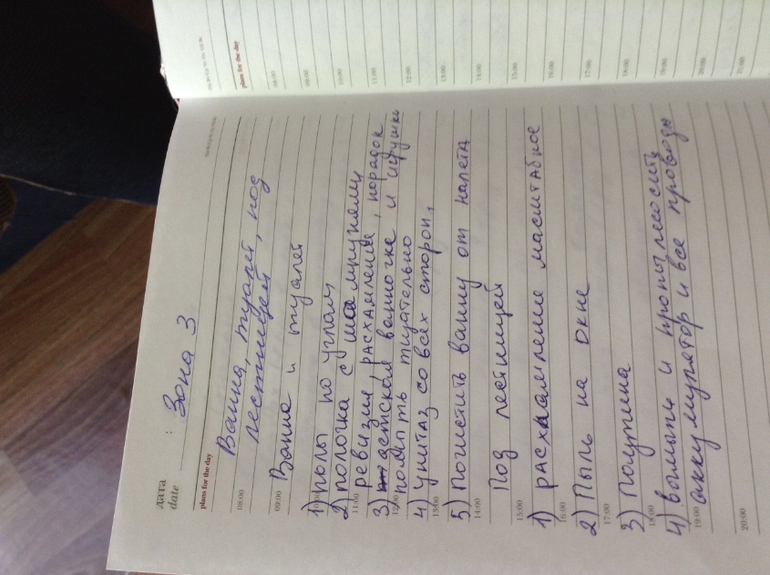 дата
date
: Зона 3
plans for the day
Ванна, туалет, под
08:00
лестницей
09:00
Ванна и туалет
1) полы по углам
2) полочка с
11:00
ревизия, расхламление, порядок
3) детской ванночке и игрушки
12:00
помыть тщательно
4) унитаз со всех сторон,
13:00
5) Почистить ванну от налета
14:00
Под лестницей
15:00
1) расхламление масштабное
16:00
2) Пыль на окне
17:00
3) Паутина
18:00
4) вымыть и пропылесосить
19:00
аккумулятор и все провода
20:00
plans for the day
08:00
09:00
10:00
11:00
12:00
13:00
14:00
15:00
16:00
17:00
18:00
19:00
20:00
21:00